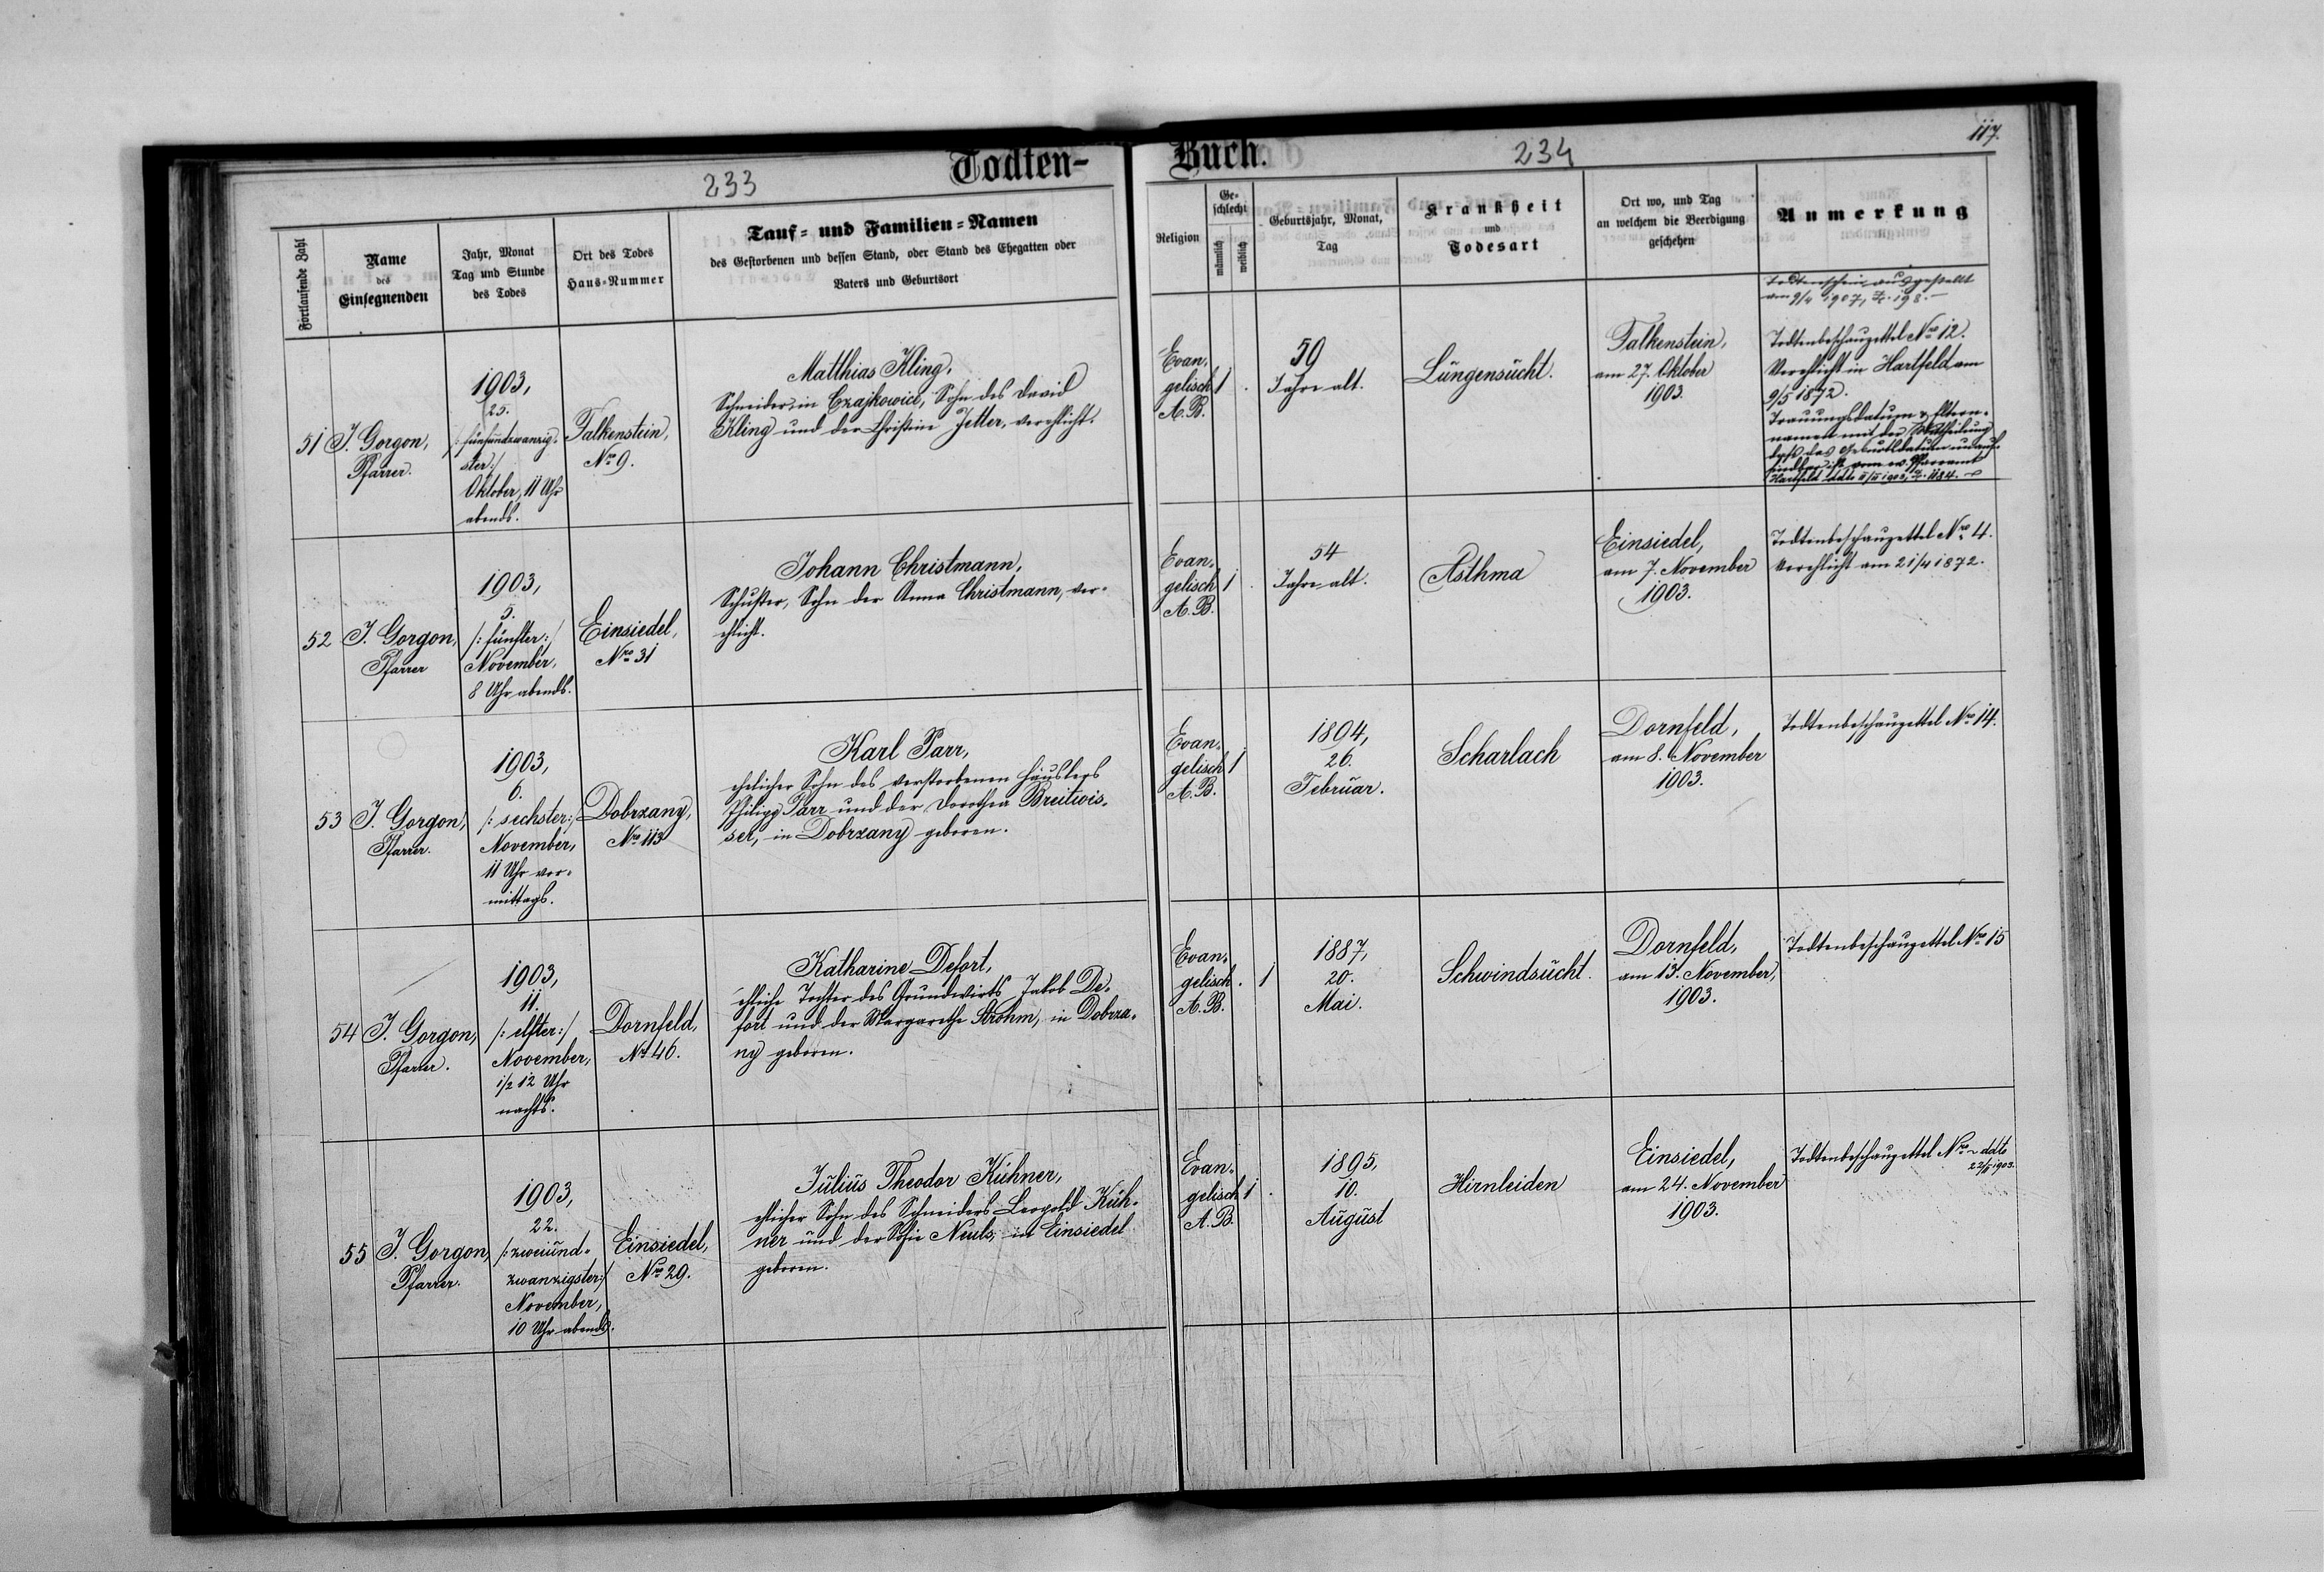 Todten-
Buch.
233
234
117.
Fortlaufende Zahl
Name
des
Einsegnenden
Jahr, Monat
Tag und Stunde
des Todes
Ort des Todes
Haus-Nummer
Tauf- und Familien-Namen
des Gestorbenen und dessen Stand, oder Stand des Ehegatten oder
Vaters und Geburtsort
Religion
Ge-
schlecht
männlich
weiblich
Geburtsjahr, Monat,
Tag
Krankheit
und
Todesart
Ort wo, und Tag
an welchem die Beerdigung
geschehen
Anmerkung
51
J. Gorgon,
Pfarrer.
1903,
25.
/: fünfundzwanzig-
ster:/
Oktober, 11 Uhr
abends.
Falkenstein,
Nro 9.
Matthias Kling,
Schneider in Czajkowice, Sohn des David
Kling und der Christine Jetter, verehlicht.
Evan-
gelisch
A. B.
1 .
59
Jahre alt.
Lungensucht.
Falkenstein,
am 27. Oktober
1903.
Todtenschein ausgestellt
am 9/4 1907, Z. 198.-
Todtenbeschauzettel Nro 12.
Verehlicht in Hartfeld am
9/5 1872.
Trauungsdatum & Eltern-
namen mit der Mittheilung
daß das Geburtsdatum unauf-
findbar ist vom ev. Pfarramt
Hartfeld ddto
52
J. Gorgon,
Pfarrer
1903,
5.
/: fünfter:/
November,
8 Uhr abends.
Einsiedel,
Nro 31
Johann Christmann,
Schuster, Sohn der Anna Christmann, ver-
ehlicht.
Evan-
gelisch
A. B.
1 .
54
Jahre alt.
Asthma
Einsiedel,
am 7. November
1903.
Todtenbeschauzettel Nro 4.
Verehlicht am 21/4 1872.
53
J. Gorgon,
Pfarrer.
1903,
6.
/: sechster:/
November,
11 Uhr vor-
mittags.
Dobrzany,
Nro 113
Karl Parr,
ehelicher Sohn des verstorbenen Häuslers
Philipp Parr und der Dorothea Breitwis-
ser, in Dobrzany geboren.
Evan-
gelisch
A. B.
1
1894,
26.
Februar.
Scharlach
Dornfeld,
am 8. November
1903.
Todtenbeschauzettel Nro 14.
54
J. Gorgon,
Pfarrer.
1903,
11.
/: elfter:/
November,
1/2 12 Uhr
nachts.
Dornfeld,
Nro 46.
Katharine Defort,
ehliche Tochter des Grundwirts Jakob De-
fort und der Margarethe Strohm, in Dobrza-
ny geboren.
Evan-
gelisch
A. B.
. 1
1887,
20.
Mai.
Schwindsucht.
Dornfeld,
am 13. November,
1903.
Todtenbeschauzettel Nro 15
55
J. Gorgon,
Pfarrer.
1903,
22.
/: zweiund-
zwanzigster:/
November,
10 Uhr abends.
Einsiedel,
Nro 29.
Julius Theodor Kühner,
ehlicher Sohn des Schneiders Leopold Küh-
ner und der Sofie Neuls, in Einsiedel
geboren.
Evan-
gelisch
A. B.
1 .
1895,
10.
August
Hirnleiden
Einsiedel,
am 24. November
1903.
Todtenbeschauzettel Nro - ddto